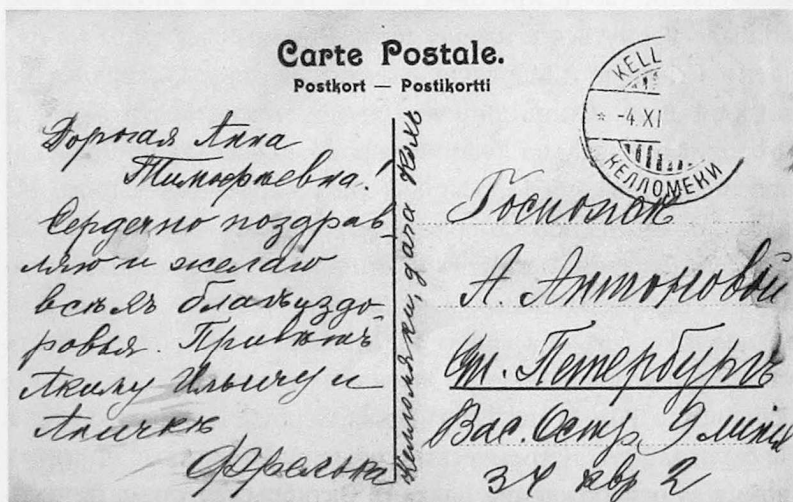 Carte Postale.
Postkort — Postikortti
KELL
* -4.XI
КЕЛЛОМЕКИ
Дорогая Анна
Тимофѣевна!
Сердечно поздрав
ляю и желаю
всѣхъ благъ, здо-
ровья. Привѣтъ
Акиму Ильичу и
Аничкѣ
Келломяки, дача
Госпожѣ
А. Антоновой
Ст. Петербургъ
Вас. Остр. 9 линія
кв 2